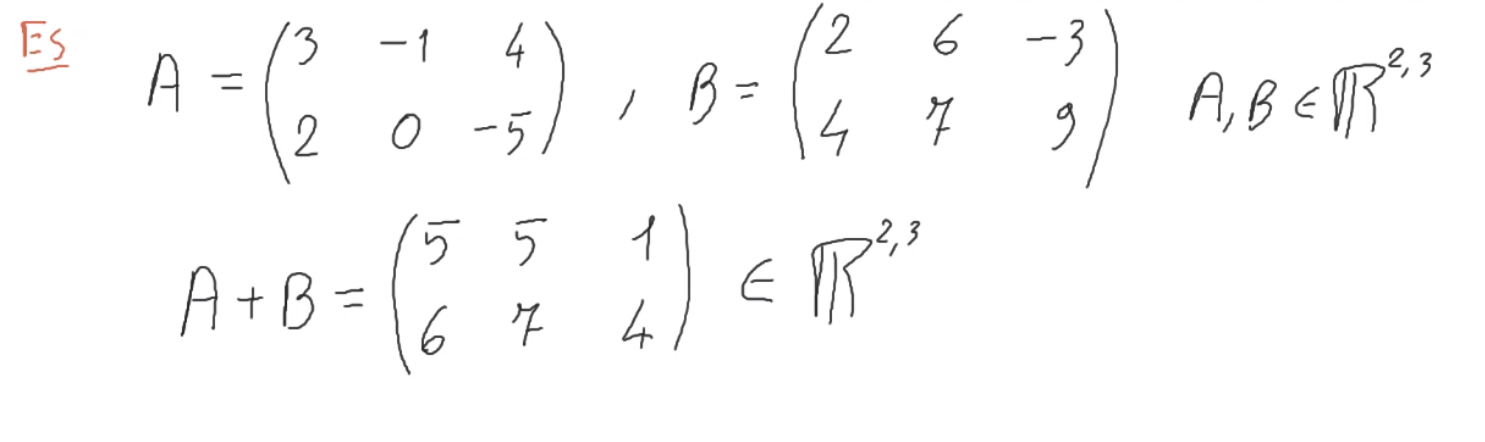 ES A = (3 -1 4 ; 2 0 -5) , B = (2 6 -3 ; 4 7 9) A, B ∈ ℝ^2,3
A + B = (5 5 1 ; 6 7 4) ∈ ℝ^2,3